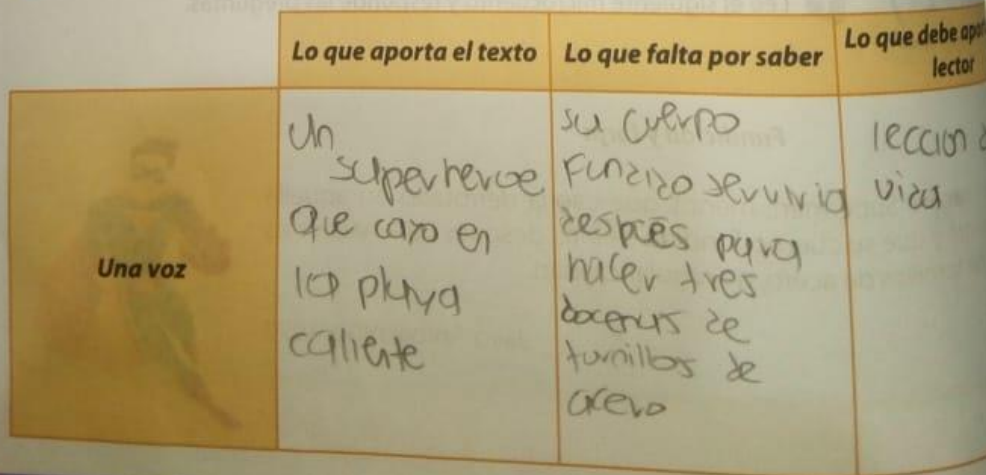 Lo que aporta el texto
Lo que falta por saber
Lo que debe apor
lector
Una voz
Un
superheroe
que cayo en
la playa
caliente
su cuerpo
Fundido serviria
después para
hacer tres
docenas de
tornillos de
acero
leccion
vida